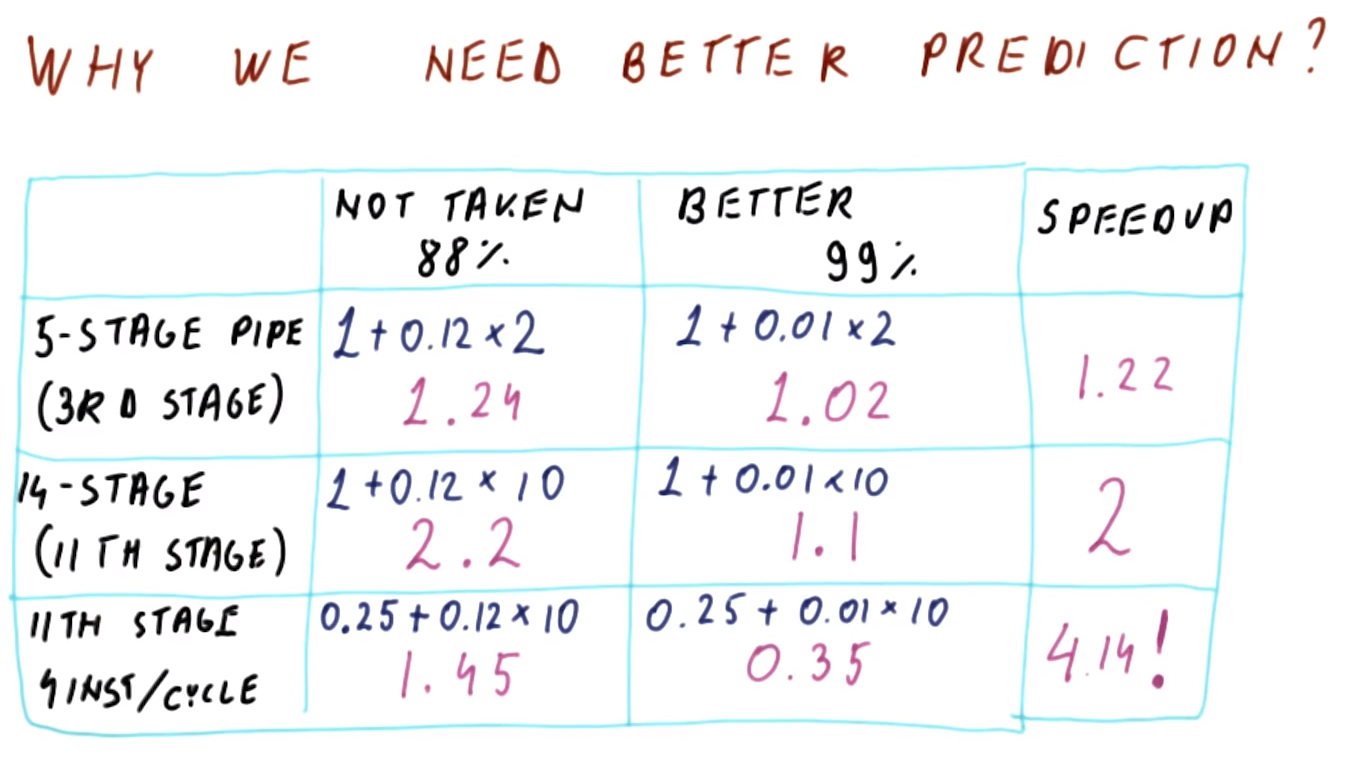 WHY WE NEED BETTER PREDICTION?
NOT TAKEN
88%
BETTER
99%
SPEEDUP
5-STAGE PIPE
(3RD STAGE)
1 + 0.12 × 2
1.24
1 + 0.01 × 2
1.02
1.22
14-STAGE
(11TH STAGE)
1 + 0.12 × 10
2.2
1 + 0.01 × 10
1.1
2
11TH STAGE
4 INST/CYCLE
0.25 + 0.12 × 10
1.45
0.25 + 0.01 × 10
0.35
4.14!